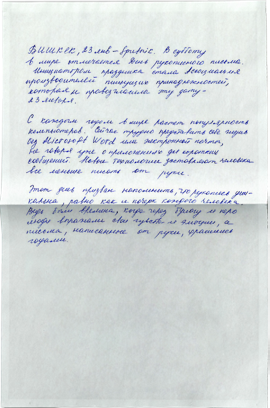 БИШКЕК, 23 янв - Sputnik. В субботу
в мире отмечается День рукописного письма.
Инициатором праздника стала Ассоциация
производителей пишущих принадлежностей,
которая и провозгласила эту дату -
23 января.
С каждым годом в мире растет популярность
компьютеров. Сейчас трудно представить себе жизнь
без Microsoft Word или электронной почты,
не говоря уже о приложениях для коротких
сообщений. Новые технологии заставляют человека
все меньше писать от руки.
Этот день призван напомнить, что рукопись уни-
кальна, равно как и почерк каждого человека.
Ведь были времена, когда через бумагу и перо
люди выражали свои чувства и эмоции, а
письма, написанные от руки, хранились
годами.